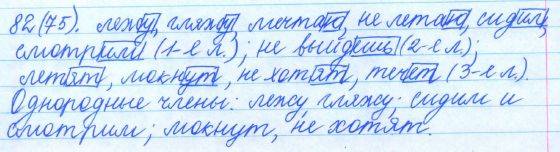 82(75). лежу, гляжу, мечтаю, не летаю, сидим,
смотрим (1-е л.); не выйдешь (2-е л.);
летят, мокнут, не хотят, течет (3-е л.).
Однородные члены: лежу, гляжу; сидим и
смотрим; мокнут, не хотят.